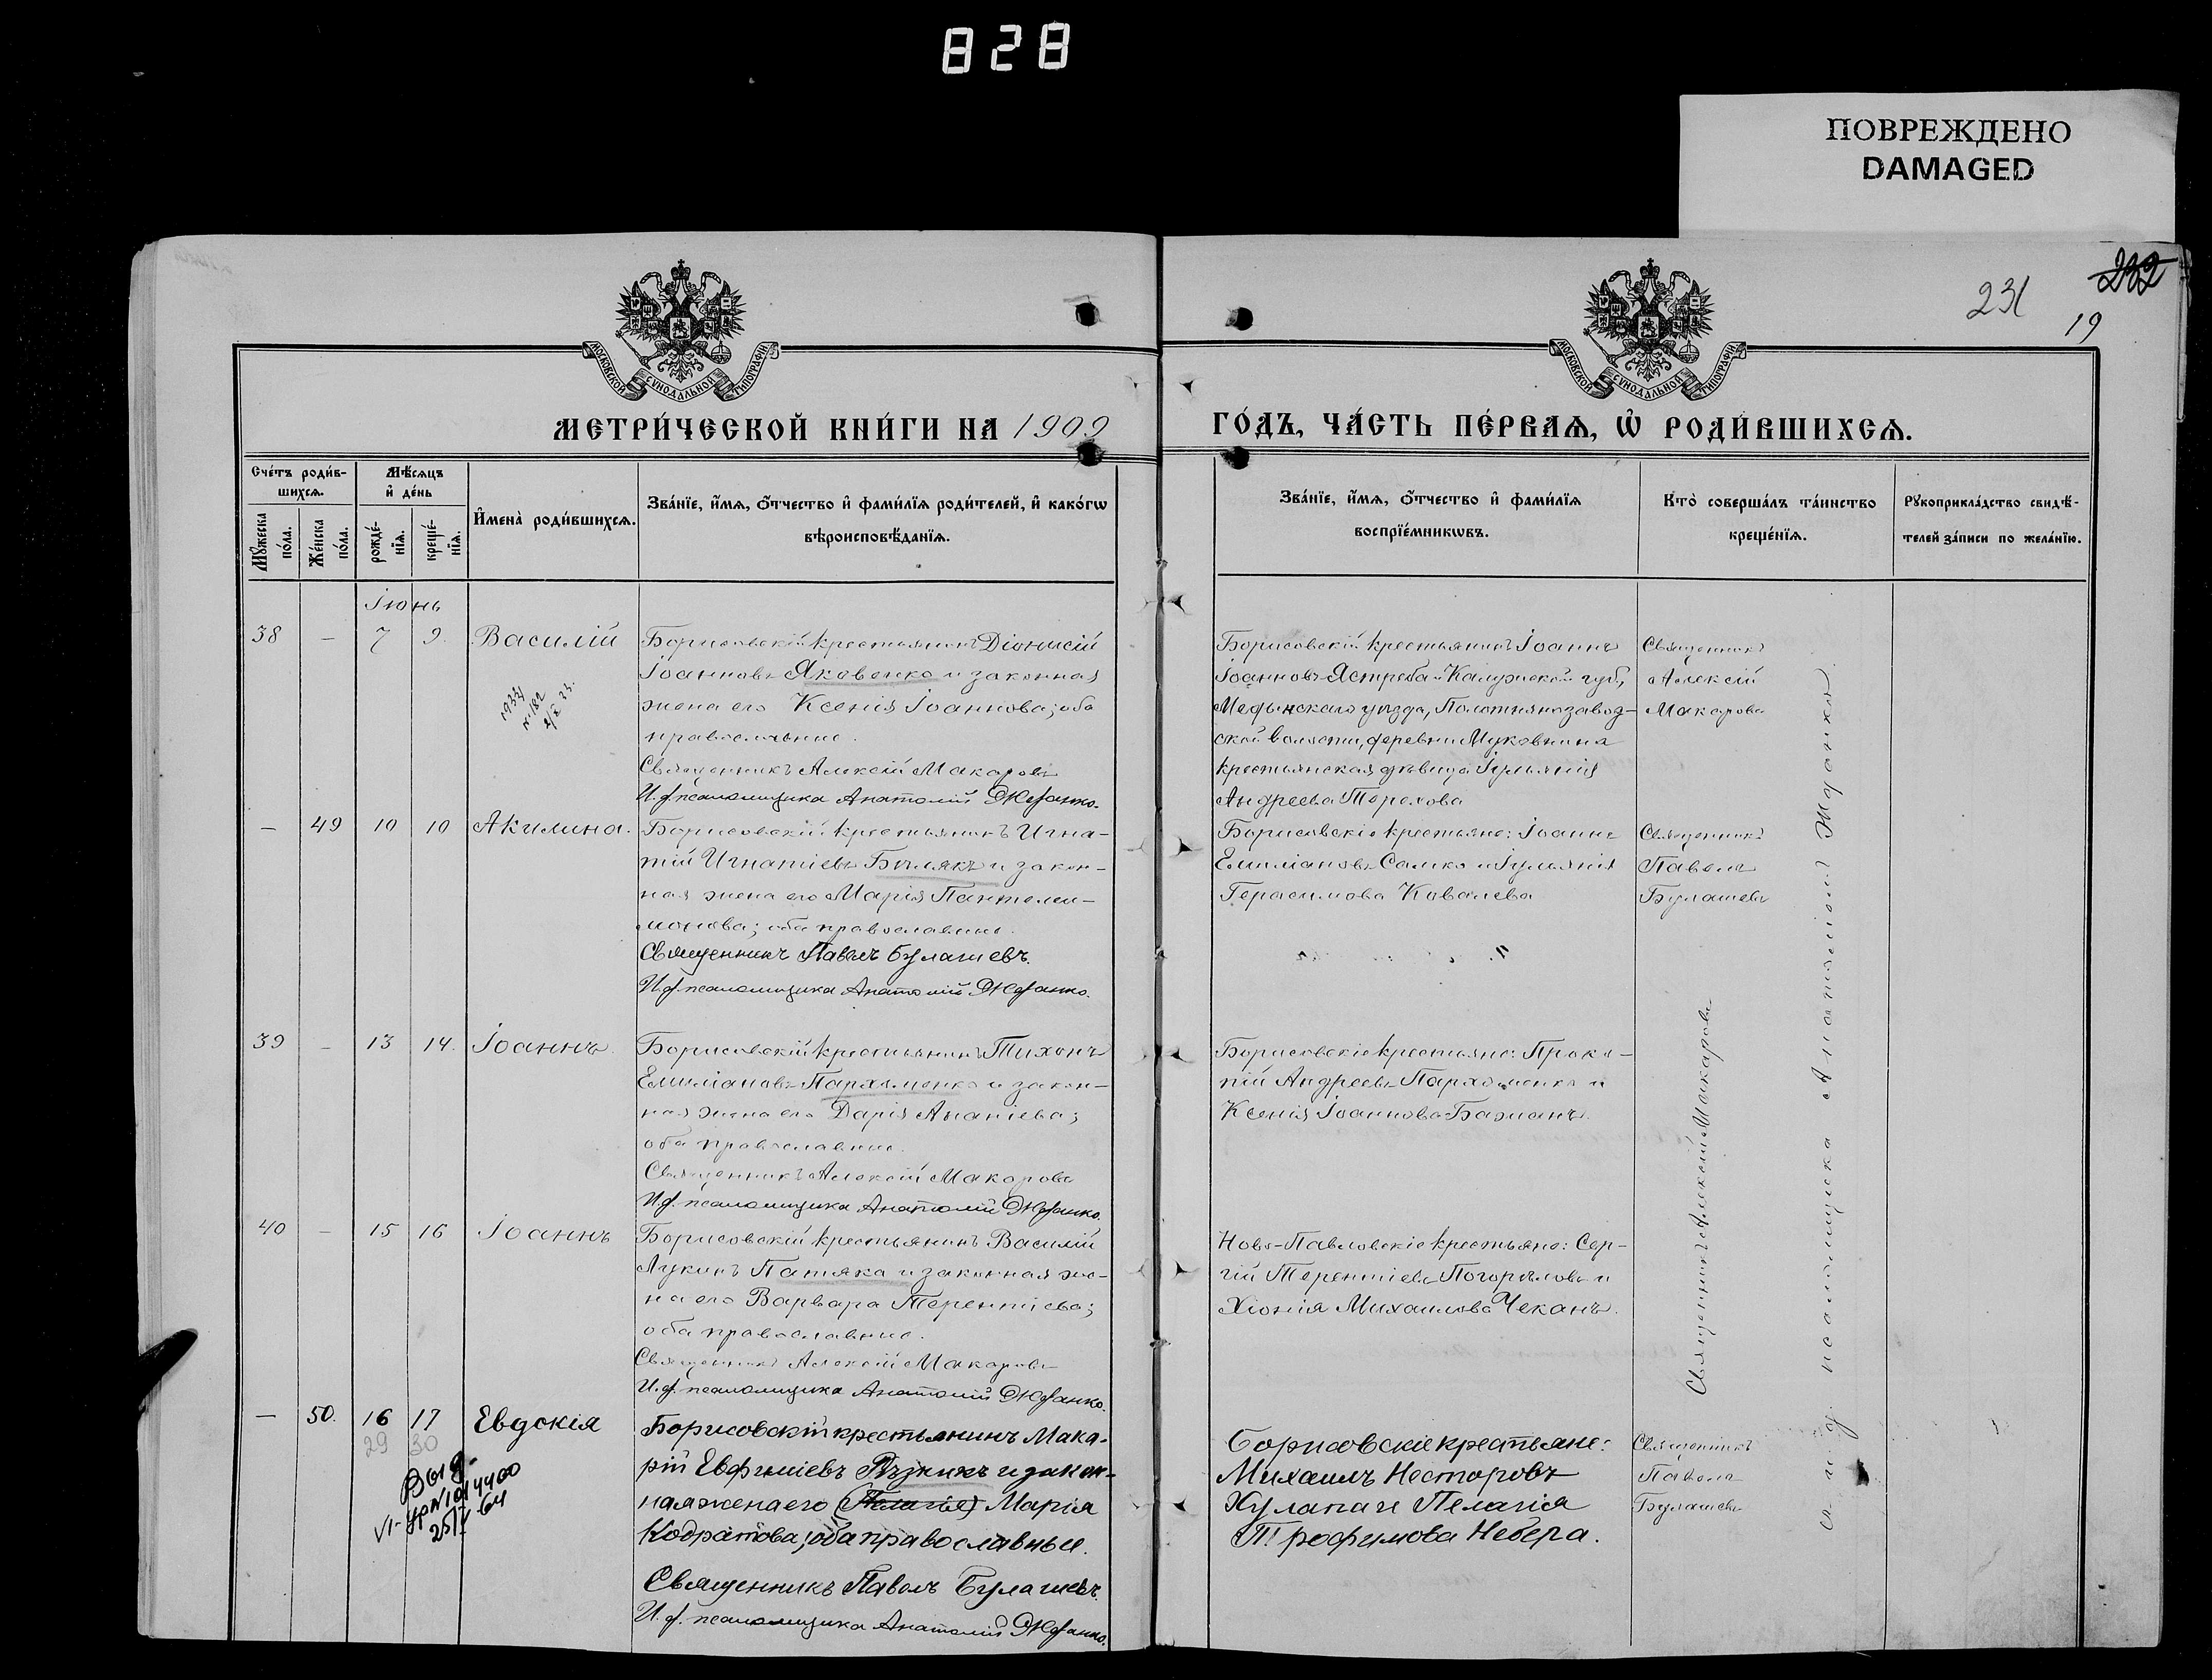 828
ПОВРЕЖДЕНО
DAMAGED
231
232
19
МОСКОВСКОЙ СѴНОДАЛЬНОЙ ТИПОГРАФІИ
МОСКОВСКОЙ СѴНОДАЛЬНОЙ ТИПОГРАФІИ
МЕТРИ́ЧЕСКОЙ КНИ́ГИ НА 1909
ГО́ДЪ, ЧА́СТЬ ПЕ́РВАѦ, Ѽ РОДИ́ВШИХСѦ.
Сче́тъ роди́в-
шихсѧ.
Мꙋ́жеска по́ла.
Же́нска по́ла.
Мѣ́сѧцъ
и҆ де́нь
рожде́-
нїѧ.
креще́-
нїѧ.
И҆мена̀ роди́вшихсѧ.
Зва́нїе, и҆́мѧ, ѻ҆́тчество и҆ фами́лїѧ роди́телей, и҆ како́гѡ
вѣроисповѣ́данїѧ.
Зва́нїе, и҆́мѧ, ѻ҆́тчество и҆ фами́лїѧ
воспрїе́мникѡвъ.
Кто̀ соверша́лъ та́инство
креще́нїѧ.
Рꙋкоприкла́дство свидѣ́-
телей за́писи по жела́нїю.
Іюнь
38 — 7 9. Василій
Борисовскій крестьянинъ Діонисій
Іоанновъ Яковенко и законная
жена его Ксенія Іоаннова; оба
православные.
Священникъ Алексій Макаровъ
И. д. псаломщика Анатолій Жданко.
Борисовскій крестьянинъ Іоаннъ
Іоанновъ Ястреба и Калужской губ.,
Медынскаго уѣзда, Полотнянозавод-
ской волости, деревни Муковнина
крестьянская дѣвица Іуліанія
Андреева Терехова
Священникъ
Алексій
Макаровъ
— 49 10 10 Акилина.
Борисовскій крестьянинъ Игна-
тій Игнатіевъ Бѣлякъ и закон-
ная жена его Марія Пантелеи-
монова; оба православные.
Священникъ Павелъ Булашевъ.
И. д. псаломщика Анатолій Жданко.
Борисовскіе крестьяне: Іоаннъ
Емиліановъ Самко и Іуліанія
Герасимова Ковалева
Священникъ
Павелъ
Булашевъ
39 — 13 14. Іоаннъ.
Борисовскій крестьянинъ Тихонъ
Емиліановъ Пархоменко и закон-
ная жена его Дарія Ананіева;
оба православные.
Священникъ Алексій Макаровъ
И. д. псаломщика Анатолій Жданко.
Борисовскіе крестьяне: Проко-
пій Андреевъ Пархоменко и
Ксенія Іоаннова Бажанъ.
40 — 15 16 Іоаннъ
Борисовскій крестьянинъ Василій
Лукинъ Патяка и законная же-
на его Варвара Терентіева;
оба православные.
Священникъ Алексій Макаровъ
И. д. псаломщика Анатолій Жданко.
Ново-Павловскіе крестьяне: Сер-
гій Терентіевъ Погорѣловъ и
Хіонія Михаилова Чеканъ.
Священникъ Алексій Макаровъ
И. д. псаломщика Анатолій Жданко
— 50. 16 17 Евдокія
29 30
Борисовскій крестьянинъ Мака-
рій Евфиміевъ Рѣзникъ и закон-
ная жена его (Пелагія) Марія
Кодратова; оба православные.
Священникъ Павелъ Булашевъ.
И. д. псаломщика Анатолій Жданко.
Борисовскіе крестьяне:
Михаилъ Несторовъ
Хулапа и Пелагія
Трофимова Небера.
Священникъ
Павелъ
Булашевъ